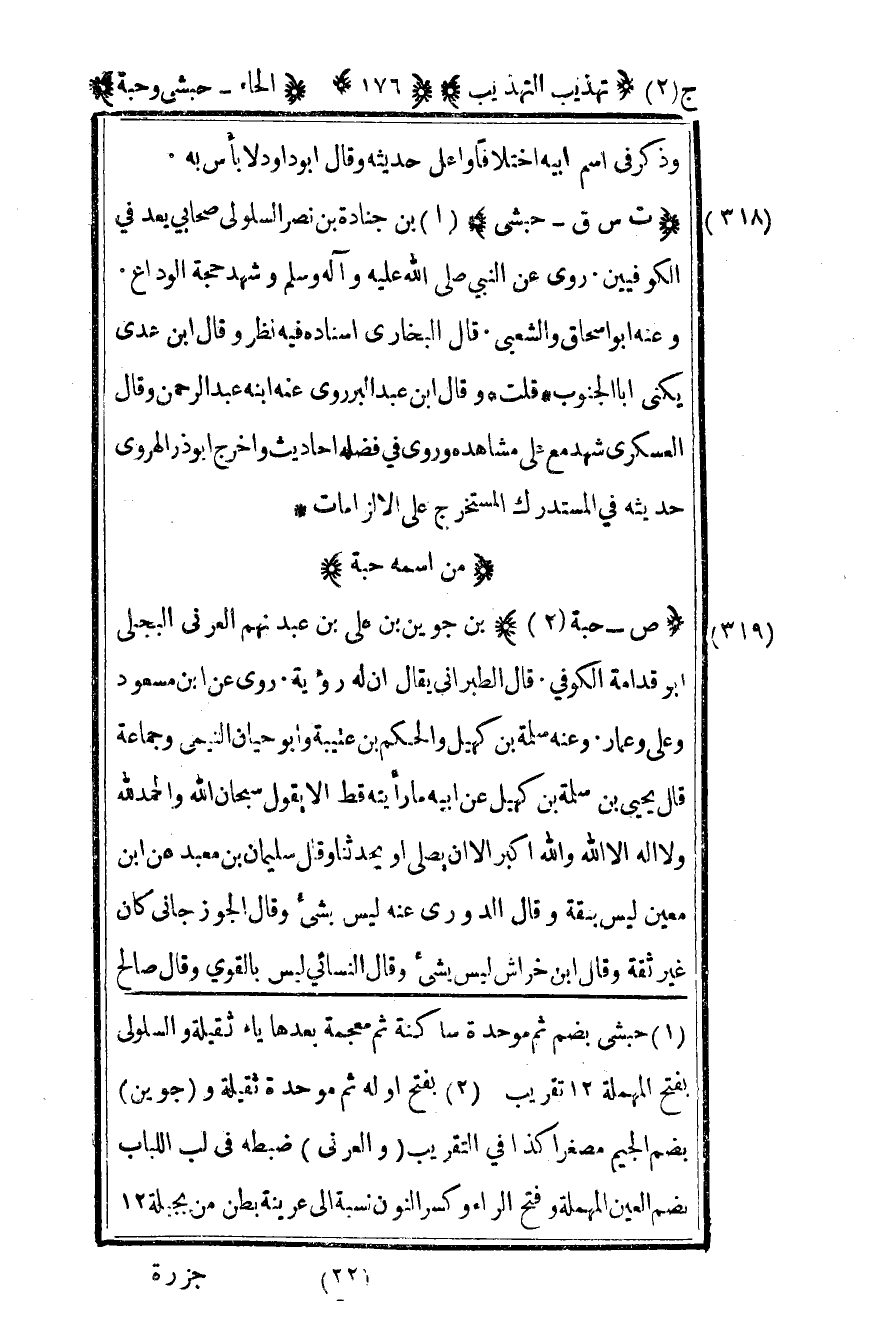 ج (٢) ﴿ تهذيب التهذيب ﴾ ﴿ ١٧٦ ﴾ ﴿ الحاء ـ حبشى وحبة ﴾
وذكر فى اسم ابيه اختلافا واعل حديثه وقال ابو داود لا بأس به ٠
(٣١٨) ﴿ ت س ق ـ حبشى ﴾ (١) بن جنادة بن نصر السلولى صحابي يعد في
الكوفيين ٠ روى عن النبي صلى الله عليه وآله وسلم وشهد حجة الوداع ٠
وعنه ابو اسحاق والشعبى ٠ قال البخارى اسناده فيه نظر وقال ابن عدى
يكنى ابا الجنوب * قلت * وقال ابن عبد البر روى عنه ابنه عبد الرحمن وقال
العسكرى شهد مع على مشاهده وروى في فضله احاديث واخرج ابو ذر الهروى
حديثه في المستدرك المستخرج على الالزامات *
﴿ من اسمه حبة ﴾
(٣١٩) ﴿ ص ـ حبة (٢) ﴾ بن جوين بن على بن عبد نهم العرنى البجلى
ابو قدامة الكوفي ٠ قال الطبراني يقال ان له رؤية ٠ روى عن ابن مسعود
وعلى وعمار ٠ وعنه سلمة بن كهيل والحكم بن عتيبة وابو حيان التيمى وجماعة
قال يحيى بن سلمة بن كهيل عن ابيه ما رأيته قط الا يقول سبحان الله والحمد لله
ولا اله الا الله والله اكبر الا ان يصلى او يحدثنا وقال سليمان بن معبد عن ابن
معين ليس بثقة وقال الدورى عنه ليس بشئ وقال الجوزجانى كان
غير ثقة وقال ابن خراش ليس بشئ وقال النسائي ليس بالقوي وقال صالح
(١) حبشى بضم ثم موحدة ساكنة ثم معجمة بعدها ياء ثقيلة و السلولى
بفتح المهملة ١٢ تقريب (٢) بفتح اوله ثم موحدة ثقيلة و (جوين)
بضم الجيم مصغرا كذا في التقريب (و العرنى) ضبطه فى لب اللباب
بضم العين المهملة وفتح الراء وكسر النون نسبة الى عرينة بطن من بجيلة ١٢
(٢٢) جزرة